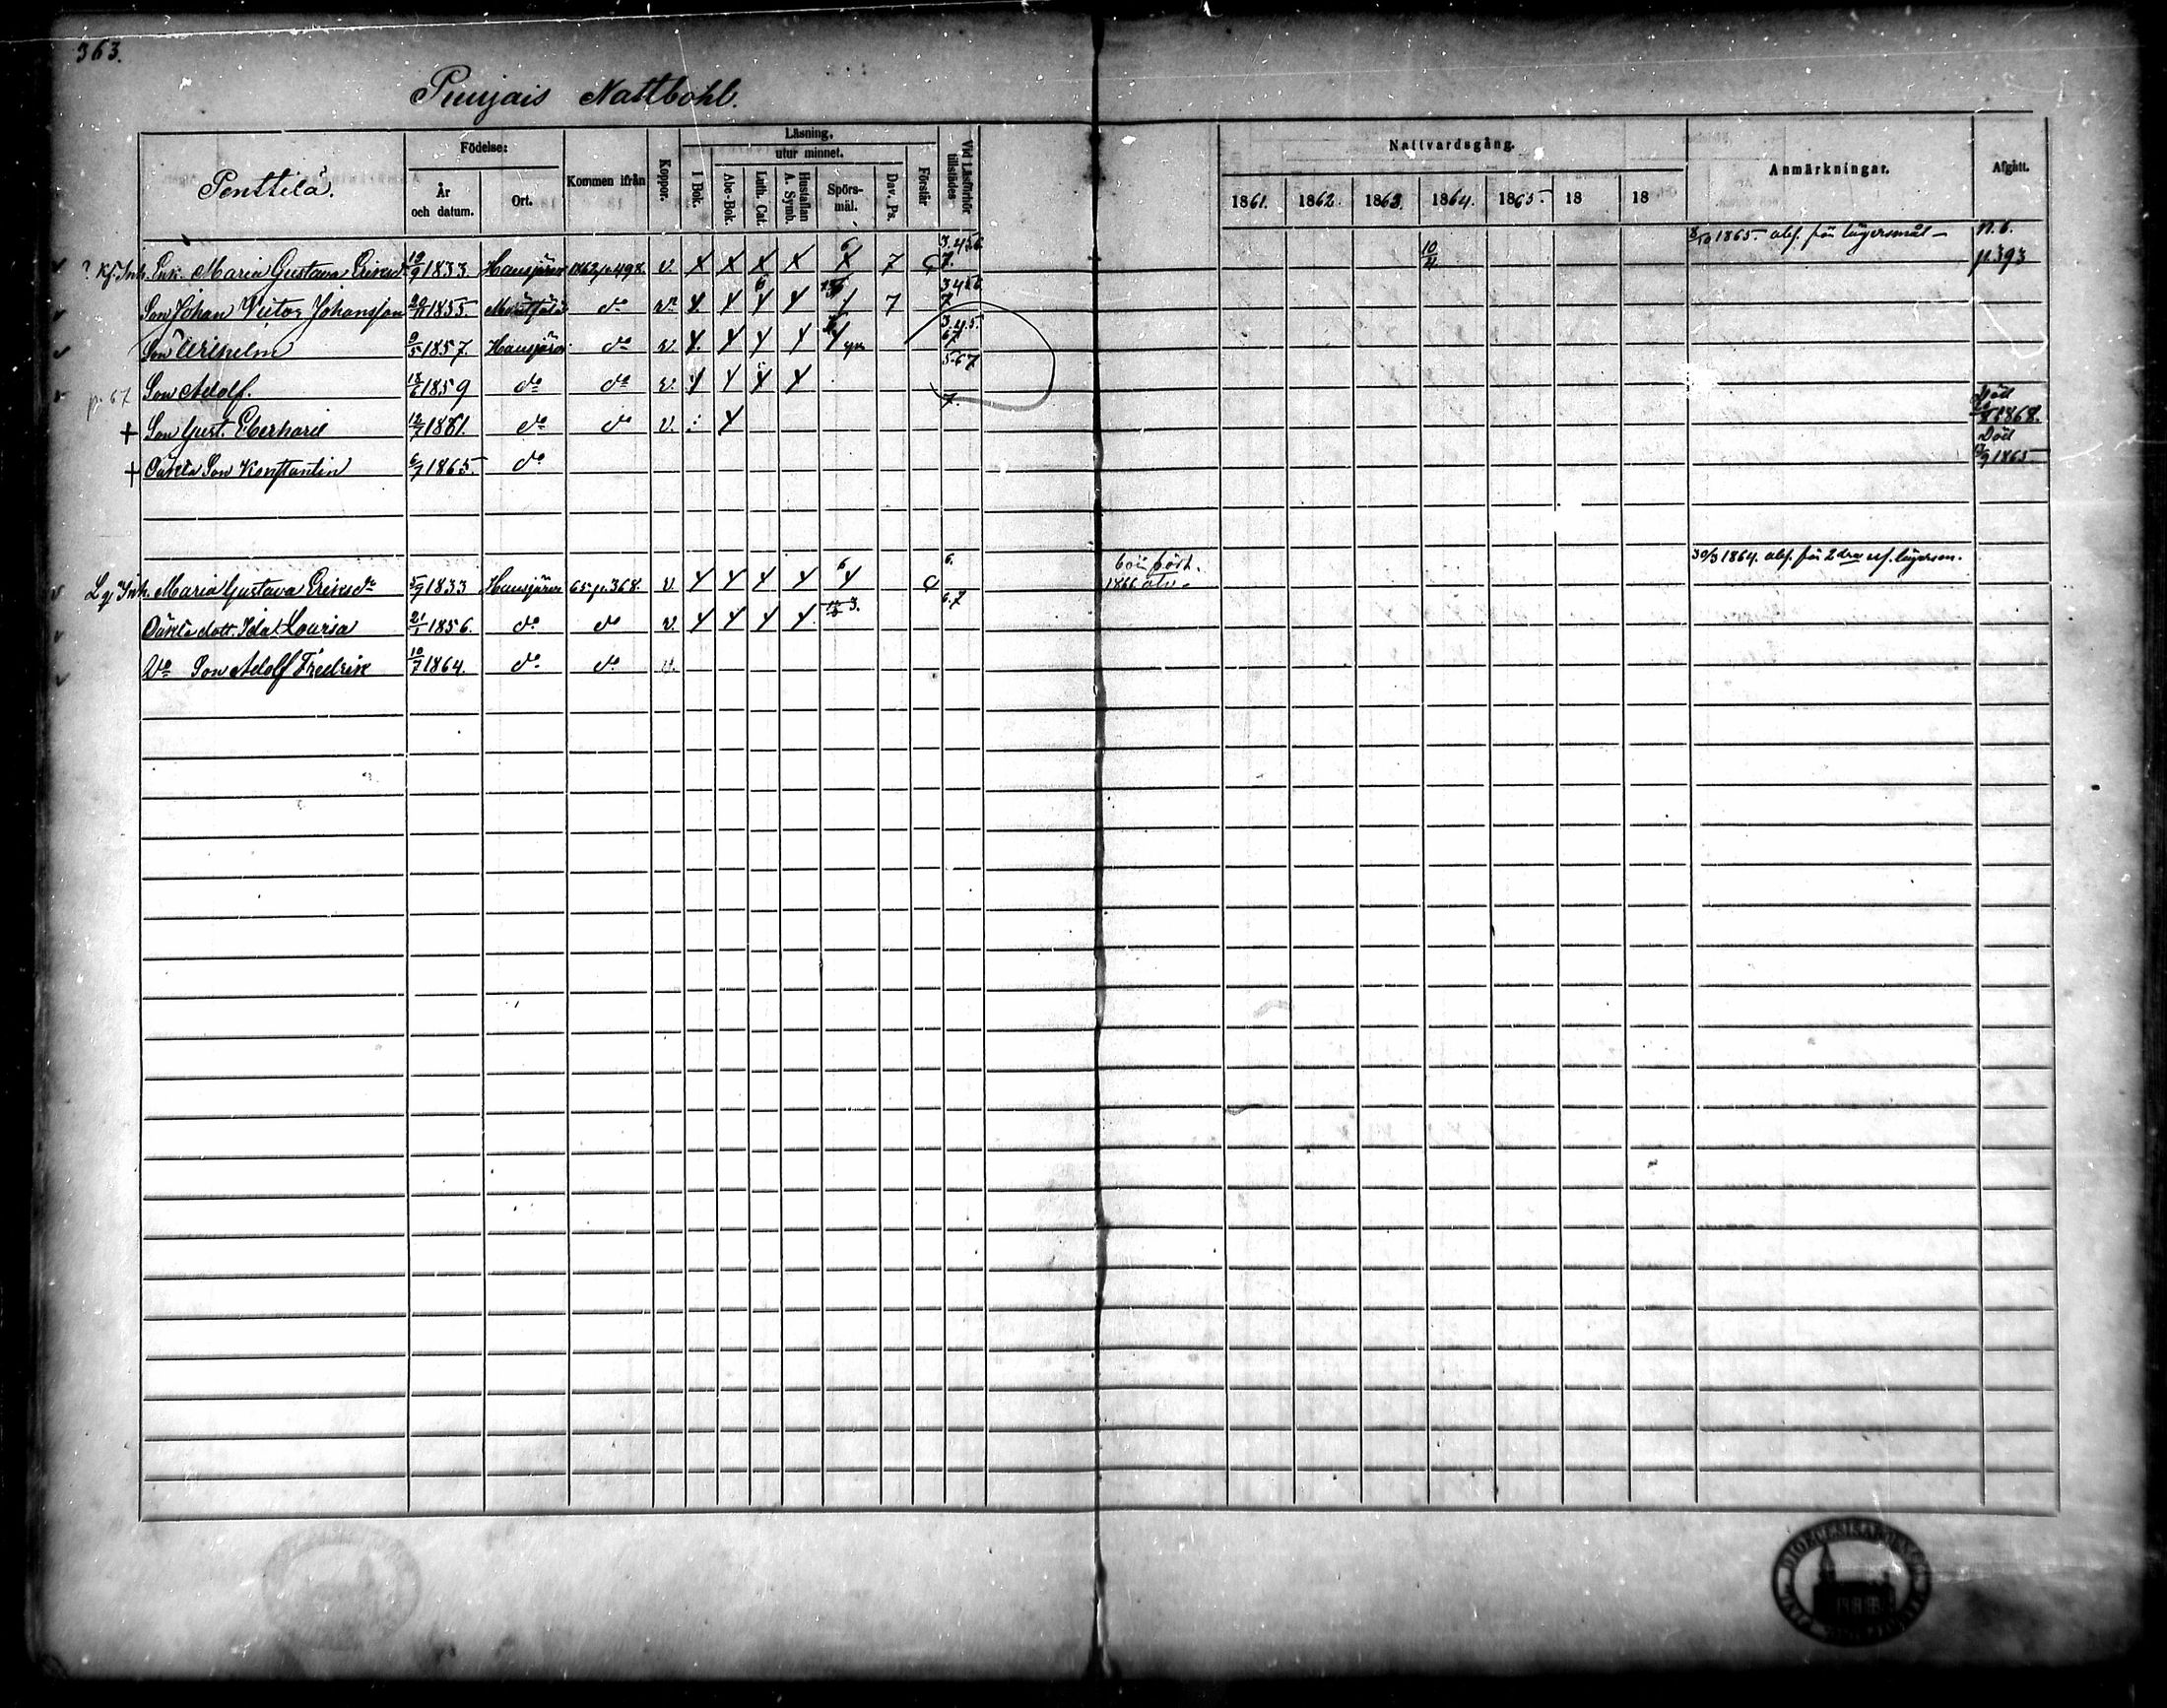 363.
Punjais Nattbohl.
Penttilä.
Födelse:
År och datum.
Ort.
Kommen ifrån
Koppor.
Läsning.
utur minnet.
I Bok.
Abc-Bok.
Luth. Cat.
Hustaflan A. Symb.
Spörs-mål.
Dav. Ps.
Förstår
Vid Läsförhör tillstädes
Nattvardsgång.
1861. 1862. 1863. 1864. 1865. 18 18
Anmärkningar.
Afgått.
Enk. Maria Gustava Eriksd 19/9 1833 Hausjärvi 1862 p. 498. v. 7 3.4.5.6. 7. 10/4 1865. abs. för lägersmål n. 6. p 393
Son Johan Victor Johansson 1855. do v. 7 3 4 5 6 7
Son Wilhelm 9/5 1857. Hausjärvi do v. 3.4.5. 67
p. 67 Son Adolf. 18/6 1859 do do v. 5.67
+ Son Gust. Eberhard 12/7 1861. do do v. 7. Död 1868.
+ Oäkta Son Konstantin 6/9 1865 do Död 1865
Inh. Maria Gustava Eriksdr 5/9 1833 Hausjärvi 65. p. 368. v. 6 6. 1866 30/3 1864. abs. för 2dra lägersm.
Oäkta dott. Ida Lovisa 21/1 1856. do do v. 6.7
Do Son Adolf Fredrik 10/7 1864. do do v.